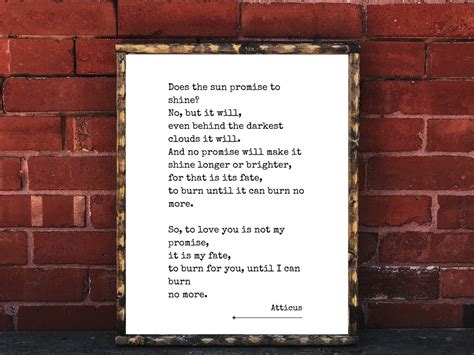 Does the sun promise to
shine?
No, but it will,
even behind the darkest
clouds it will.
And no promise will make it
shine longer or brighter,
for that is its fate,
to burn until it can burn no
more.
So, to love you is not my
promise,
it is my fate,
to burn for you, until I can
burn
no more.
Atticus